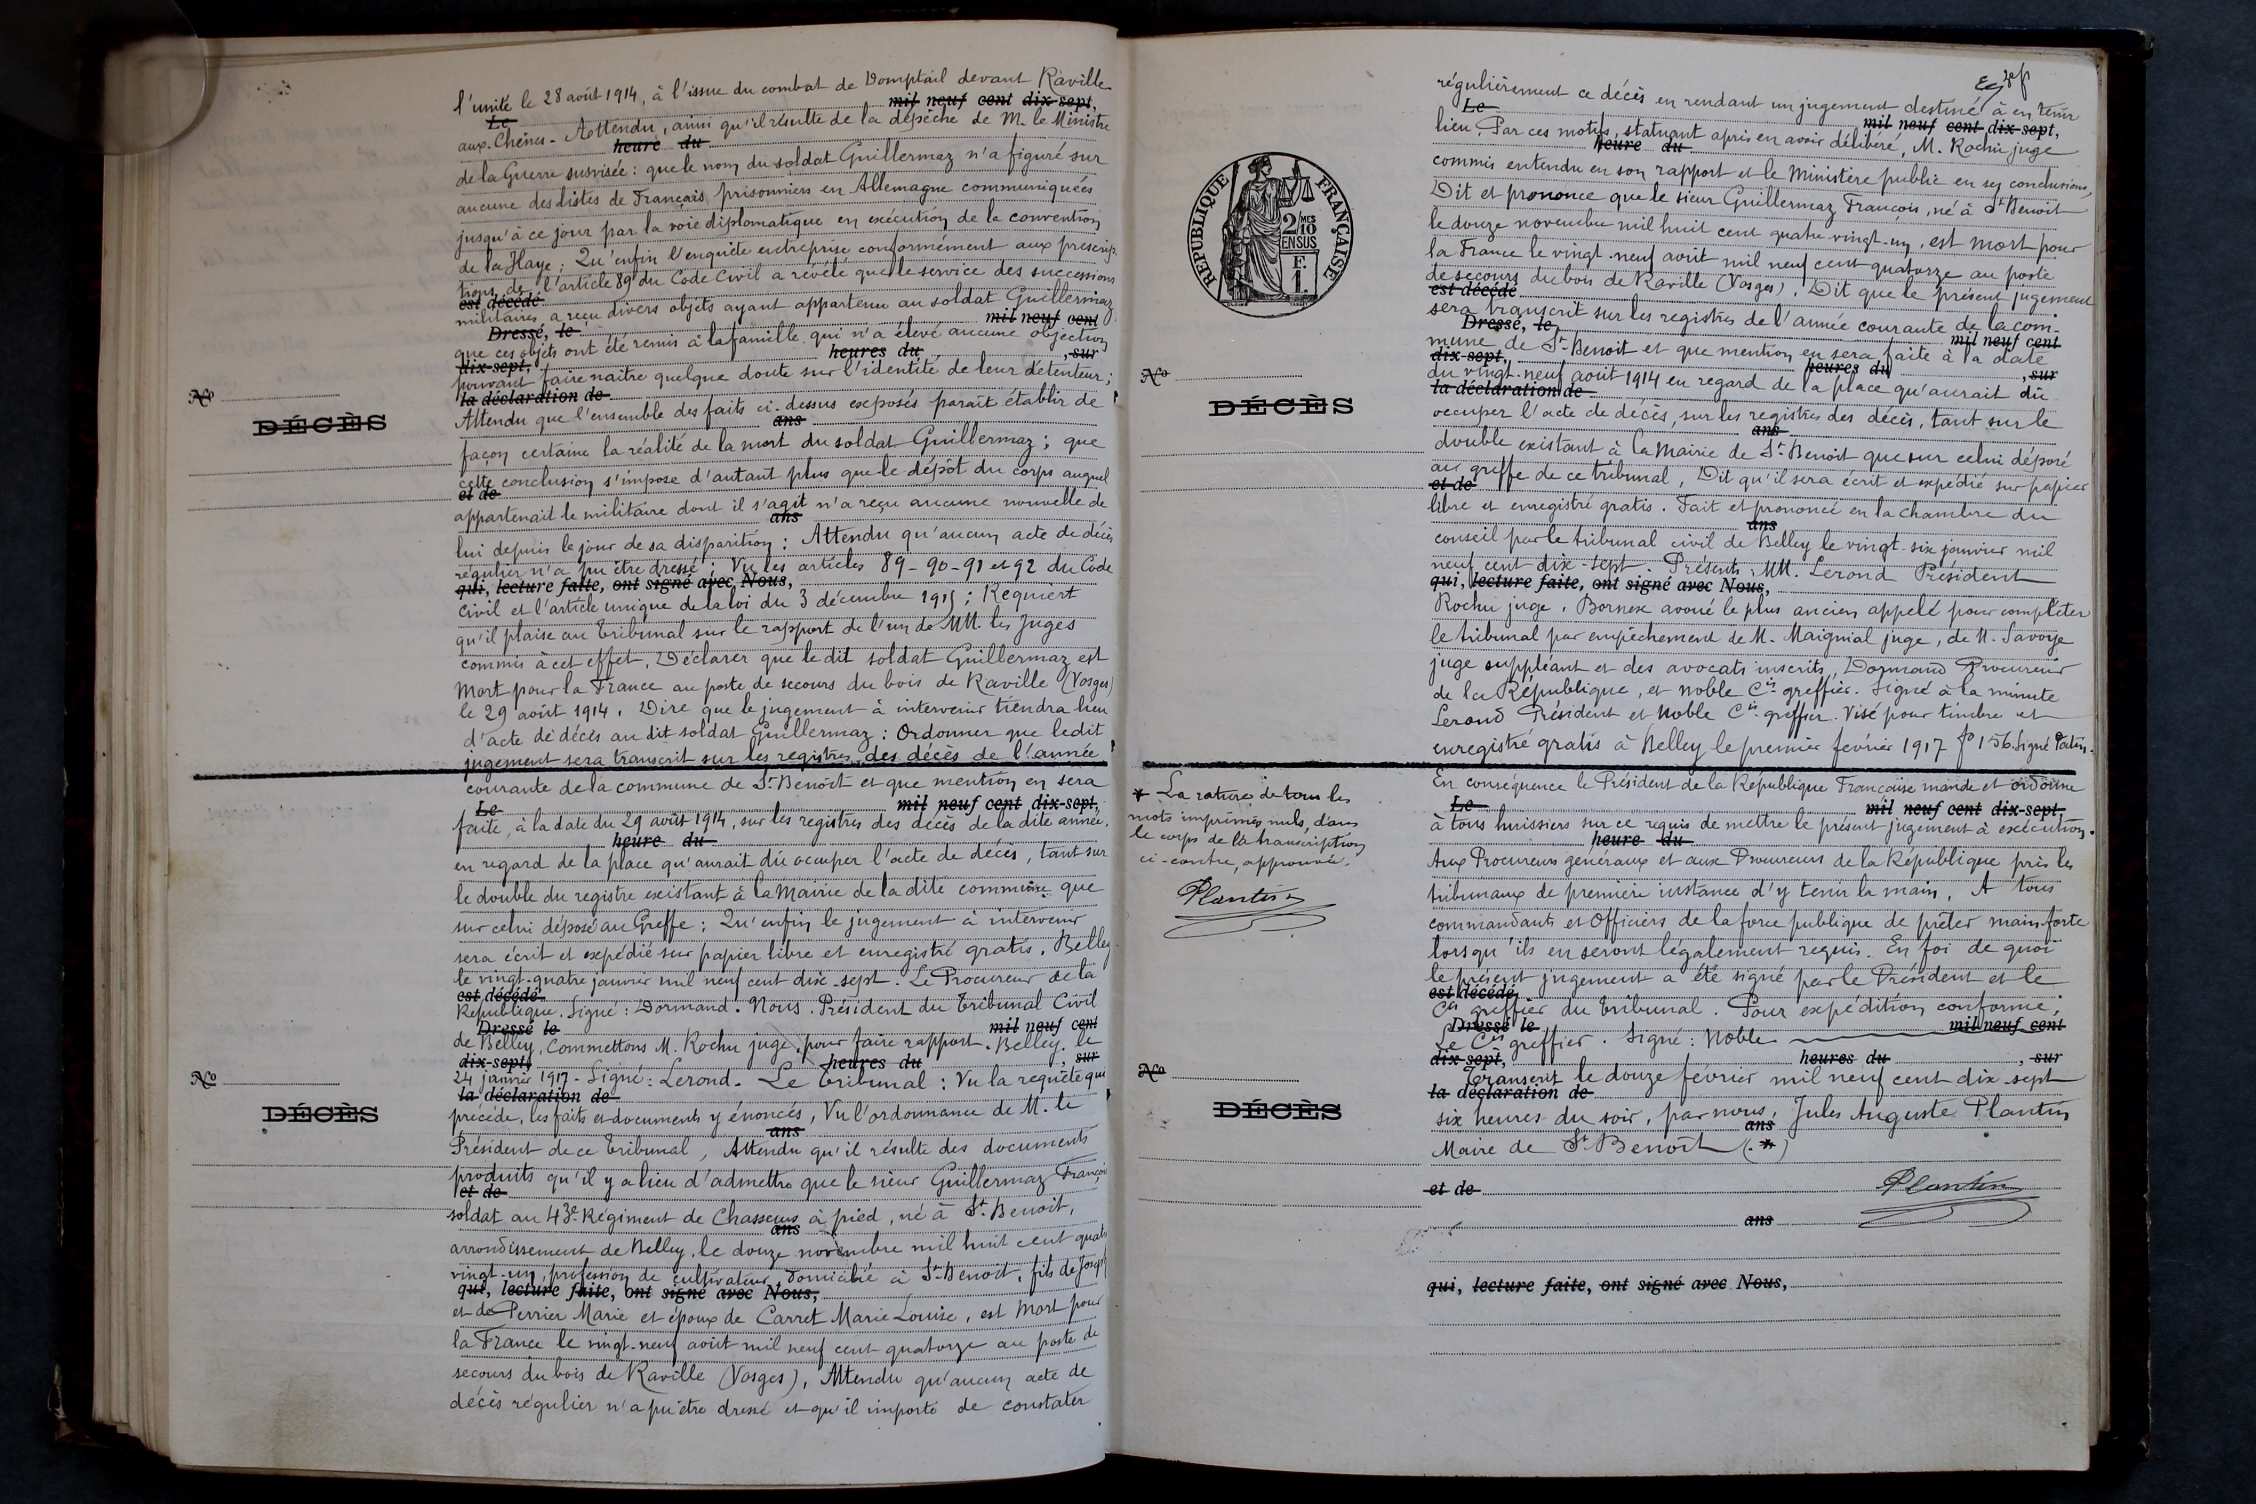 l'unité le 28 août 1914, à l'issue du combat de Domptail devant Raville
Le mil neuf cent dix-sept,
aux-Chênes - Attendu, ainsi qu'il résulte de la dépêche de M. le Ministre
heure du
de la Guerre susvisée : que le nom du soldat Guillermaz n'a figuré sur
aucune des listes de Français prisonniers en Allemagne communiquées
jusqu'à ce jour par la voie diplomatique en exécution de la convention
de la Haye ; Qu'enfin l'enquête entreprise conformément aux prescrip-
tions de l'article 89 du Code Civil a révélé que le service des successions
est décédé
militaires a reçu divers objets ayant appartenu au soldat Guillermaz
Dressé, le mil neuf cent
que ces objets ont été remis à la famille qui n'a élevé aucune objection
dix-sept, heures du , sur
pouvant faire naître quelque doute sur l'identité de leur détenteur ;
la déclaration de
Attendu que l'ensemble des faits ci-dessus exposés paraît établir de
ans
façon certaine la réalité de la mort du soldat Guillermaz ; que
cette conclusion s'impose d'autant plus que le dépôt du corps auquel
et de
appartenait le militaire dont il s'agit n'a reçu aucune nouvelle de
ans
lui depuis le jour de sa disparition : Attendu qu'aucun acte de décès
régulier n'a pu être dressé ; Vu les articles 89-90-91 et 92 du Code
qui, lecture faite, ont signé avec Nous,
Civil et l'article unique de la loi du 3 décembre 1915 ; Requiert
qu'il plaise au Tribunal sur le rapport de l'un de MM. les Juges
commis à cet effet, Déclarer que le dit soldat Guillermaz est
Mort pour la France au poste de secours du bois de Raville (Vosges)
le 29 août 1914. Dire que le jugement à intervenir tiendra lieu
d'acte de décès au dit soldat Guillermaz : Ordonner que ledit
jugement sera transcrit sur les registres des décès de l'année
No
DÉCÈS
courante de la commune de St-Benoît et que mention en sera
Le mil neuf cent dix-sept,
faite, à la date du 29 août 1914, sur les registres des décès de la dite année,
heure du
en regard de la place qu'aurait dû occuper l'acte de décès, tant sur
le double du registre existant à la Mairie de la dite commune que
sur celui déposé au Greffe : Qu'enfin le jugement à intervenir
sera écrit et expédié sur papier libre et enregistré gratis. Belley
le vingt-quatre janvier mil neuf cent dix-sept. Le Procureur de la
est décédé
République. Signé : Dormand. Nous. Président du Tribunal Civil
Dressé le mil neuf cent
de Belley, Commettons M. Rochu juge, pour faire rapport. Belley, le
dix-sept, heures du , sur
24 janvier 1917 - Signé : Lerond. Le Tribunal : Vu la requête qui
la déclaration de
précède, les faits et documents y énoncés, Vu l'ordonnance de M. le
ans
Président de ce Tribunal, Attendu qu'il résulte des documents
produits qu'il y a lieu d'admettre que le sieur Guillermaz François
et de
soldat au 43e Régiment de Chasseurs à pied, né à St. Benoit,
ans
arrondissement de Belley, le douze novembre mil huit cent quatre
vingt-un, profession de cultivateur, domicilié à St-Benoit, fils de Joseph
qui, lecture faite, ont signé avec Nous,
et de Perrier Marie et époux de Carret Marie Louise, est Mort pour
la France le vingt-neuf août mil neuf cent quatorze au poste de
secours du bois de Raville (Vosges), Attendu qu'aucun acte de
décès régulier n'a pu être dressé et qu'il importe de constater
No
DÉCÈS
régulièrement ce décès en rendant un jugement destiné à en tenir
Le mil neuf cent dix-sept,
lieu. Par ces motifs, statuant après en avoir délibéré, M. Rochu juge
heure du
commis entendu en son rapport et le Ministère public en ses conclusions,
Dit et prononce que le sieur Guillermaz Francois, né à St Benoit
le douze novembre mil huit cent quatre vingt-un, est mort pour
la France le vingt-neuf août mil neuf cent quatorze au poste
de secours du bois de Raville (Vosges). Dit que le présent jugement
est décédé
sera transcrit sur les registres de l'année courante de la com-
Dressé, le mil neuf cent
mune de St-Benoit et que mention en sera faite à la date
dix-sept, heures du , sur
du vingt-neuf août 1914 en regard de la place qu'aurait dû
la déclaration de
occuper l'acte de décès, sur les registres des décès, tant sur le
ans
double existant à la Mairie de St-Benoit que sur celui déposé
au greffe de ce tribunal, Dit qu'il sera écrit et expédié sur papier
et de
libre et enregistré gratis. Fait et prononcé en la chambre du
ans
conseil par le tribunal civil de Belley le vingt-six janvier mil
neuf cent dix-sept. Présents : MM. Lerond Président
qui, lecture faite, ont signé avec Nous,
Rochu juge, Bornex avoué le plus ancien appelé pour compléter
le tribunal par empêchement de M. Maignial juge, de M. Savoye
juge suppléant et des avocats inscrits, Dormand Procureur
de la République, et Noble Cis greffier. Signé à la minute
Lerond Président et Noble Cis greffier. Visé pour timbre et
enregistré gratis à Belley le premier février 1917 fo 156. Signé
RÉPUBLIQUE FRANÇAISE
2/10 MES
EN SUS
F.
1.
No
DÉCÈS
En conséquence le Président de la République Française mande et ordonne
Le mil neuf cent dix-sept,
à tous huissiers sur ce requis de mettre le présent jugement à exécution.
heure du
Aux Procureurs généraux et aux Procureurs de la République près les
tribunaux de première instance d'y tenir la main. A tous
commandants et Officiers de la force publique de prêter main-forte
lorsqu'ils en seront légalement requis. En foi de quoi
le présent jugement a été signé par le Président et le
est décédé
Cis greffier du tribunal. Pour expédition conforme ;
Dressé le mil neuf cent
Le Cis greffier. Signé : Noble
dix-sept, heures du , sur
Transcrit le douze février mil neuf cent dix-sept
la déclaration de
six heures du soir, par nous, Jules Auguste Plantin
ans
Maire de St Benoît (*)
et de
Plantin
ans
qui, lecture faite, ont signé avec Nous,
* La rature de tous les
mots imprimés nuls, dans
le corps de la transcription
ci-contre, approuvée.
Plantin
No
DÉCÈS